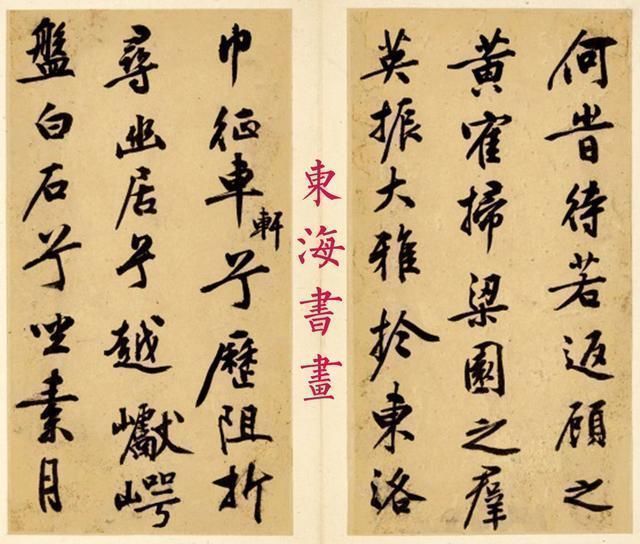 何旹待若返顧之
黃寉掃梁園之羣
英振大雅於東洛
巾征車兮歷阻折
軒
尋幽居兮越巘崿
盤白石兮坐素月
東海書畫